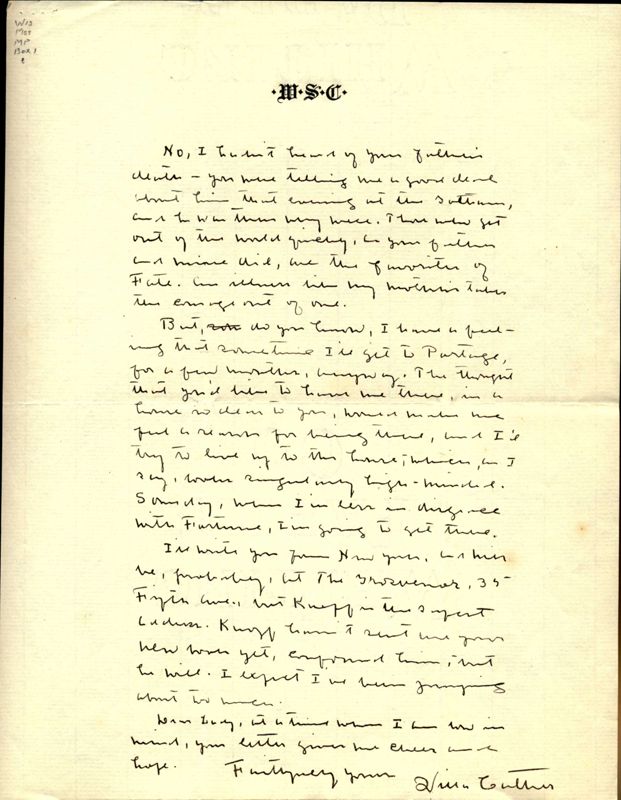 Wis
Mss
MP
Box 1
W·S·C
No, I hadn't heard of your father's
death — you were telling me a good deal
about him that evening at the
and he was then very well. Those who get
out of the world quickly, as your father
and mine did, are the favorites of
Fate. An illness like my mother's takes
the courage out of one.
But, do you know, I have a feel-
ing that sometime I'll get to Portage,
for a few months, anyway. The thought
that you'd like to have me there, in a
house so dear to you, would make me
feel a reason for being there, and I'd
try to live up to the house, which, as I
say, looks singularly high-minded.
Someday, when I'm less in disgrace
with Fortune, I'm going to get there.
I'll write you from New York, and will
be, probably, at The Grosvenor, 35
Fifth Ave., but Knopf is the safest
address. Knopf hasn't sent me your
new book yet, confound him; but
he will. I expect I've been jumping
about too much.
Dear Lady, at a time when I am low in
mind, your letter gives me cheer and
hope. Faithfully yours
Willa Cather